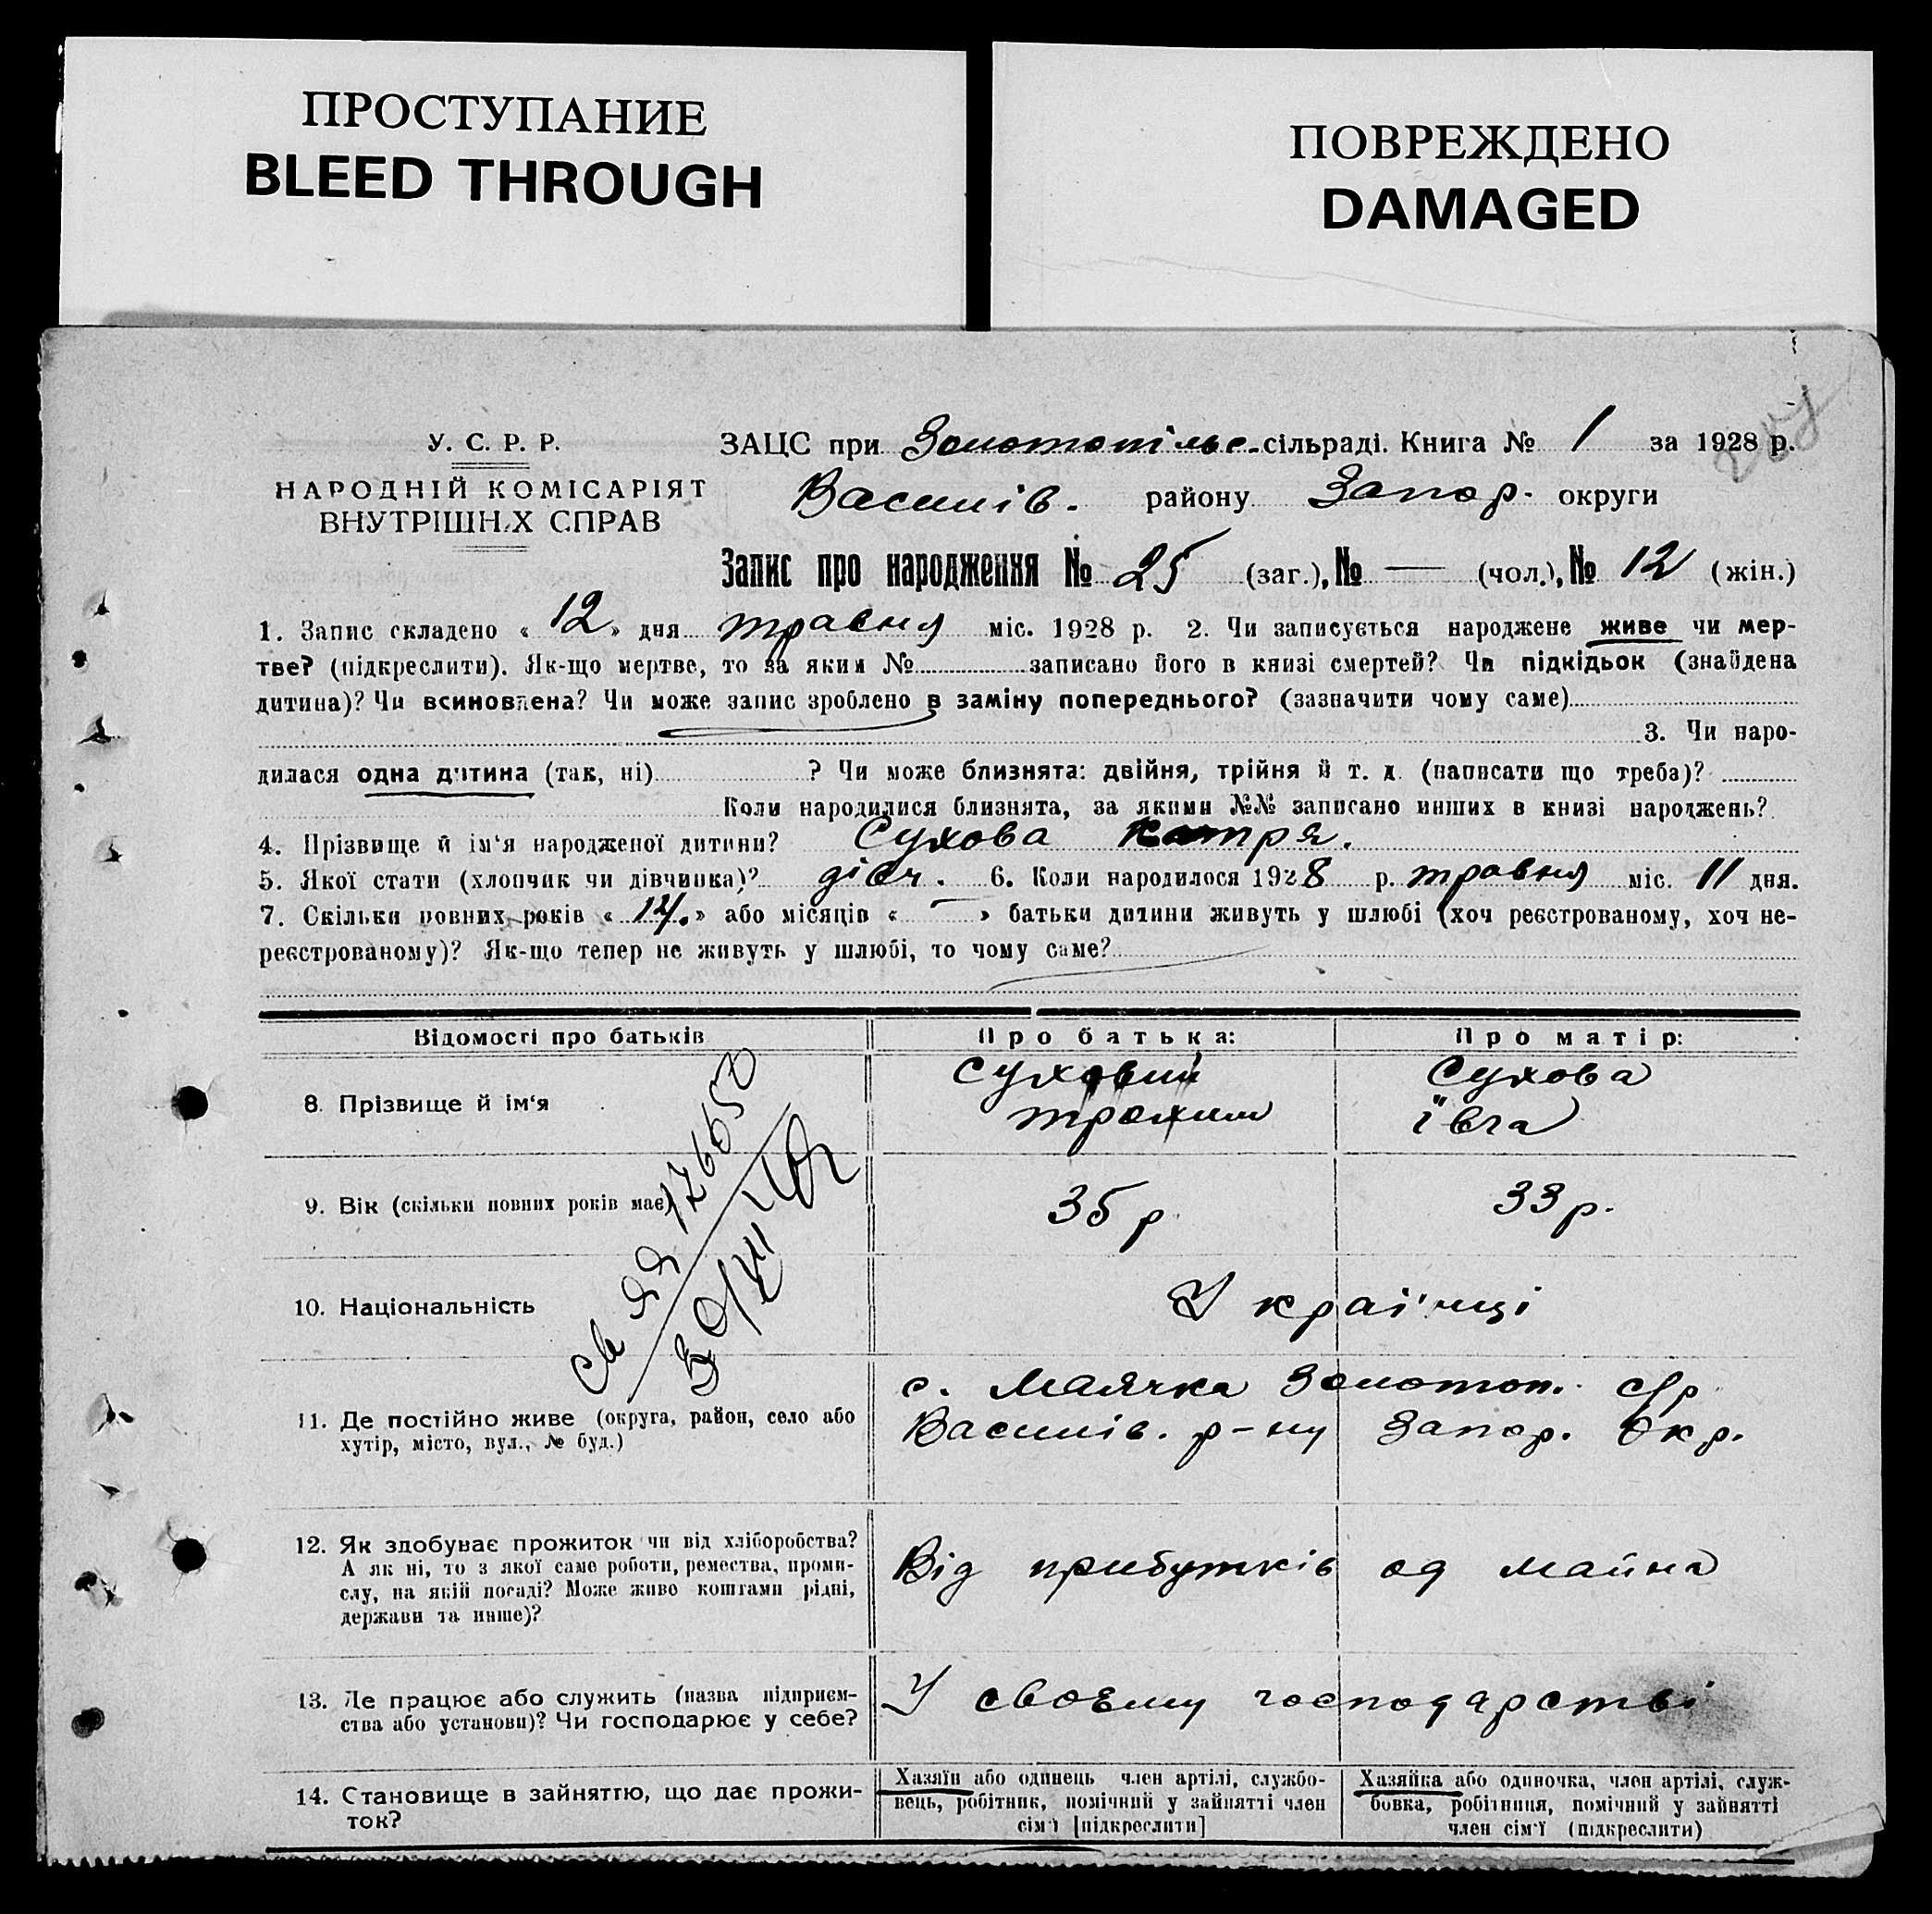 ПРОСТУПАНИЕ
BLEED THROUGH
ПОВРЕЖДЕНО
DAMAGED
У. С. Р. Р.
НАРОДНІЙ КОМІСАРІЯТ
ВНУТРІШНІХ СПРАВ
ЗАЦС при Золотопільс. сільраді. Книга № 1 за 1928 р.
Василів. району Запор. округи
Запис про народження № 25 (заг.), № — (чол.), № 12 (жін.)
1. Запис складено « 12 » дня травня міс. 1928 р. 2. Чи записується народжене живе чи мер-
тве? (підкреслити). Як-що мертве, то за яким № записано його в книзі смертей? Чи підкідьок (знайдена
дитина)? Чи всиновлена? Чи може запис зроблено в заміну попереднього? (зазначити чому саме)
3. Чи наро-
дилася одна дитина (так, ні) ? Чи може близнята: двійня, трійня й т. д. (написати що треба)?
Коли народилися близнята, за якими №№ записано инших в книзі народжень?
4. Прізвище й ім'я народженої дитини? Сухова Катря.
5. Якої стати (хлопчик чи дівчинка)? дівч. 6. Коли народилося 1928 р. травня міс. 11 дня.
7. Скільки повних років « 14. » або місяців « — » батьки дитини живуть у шлюбі (хоч реєстрованому, хоч не-
реєстрованому)? Як-що тепер не живуть у шлюбі, то чому саме?
Відомості про батьків Про батька: Про матір:
8. Прізвище й ім'я Суховий Трохим Сухова Івга
9. Вік (скільки повних років має) 35 р 33 р.
10. Національність Українці
11. Де постійно живе (округа, район, село або
хутір, місто, вул., № буд.)
с. Маячка Золотоп. с/р
Василів. р-ну Запор. Окр.
12. Як здобуває прожиток чи від хліборобства?
А як ні, то з якої саме роботи, ремества, проми-
слу, на якій посаді? Може живе коштами рідні,
держави та инше)?
Від прибутків од майна
13. Де працює або служить (назва підприєм-
ства або установи)? Чи господарює у себе?
У своєму господарстві
14. Становище в зайняттю, що дає прожи-
ток?
Хазяїн або одинець член артілі, службо-
вець, робітник, помічний у зайнятті член
сім'ї [підкреслити]
Хазяйка або одиночка, член артілі, служ-
бовка, робітниця, помічний у зайнятті
член сім'ї (підкреслити)